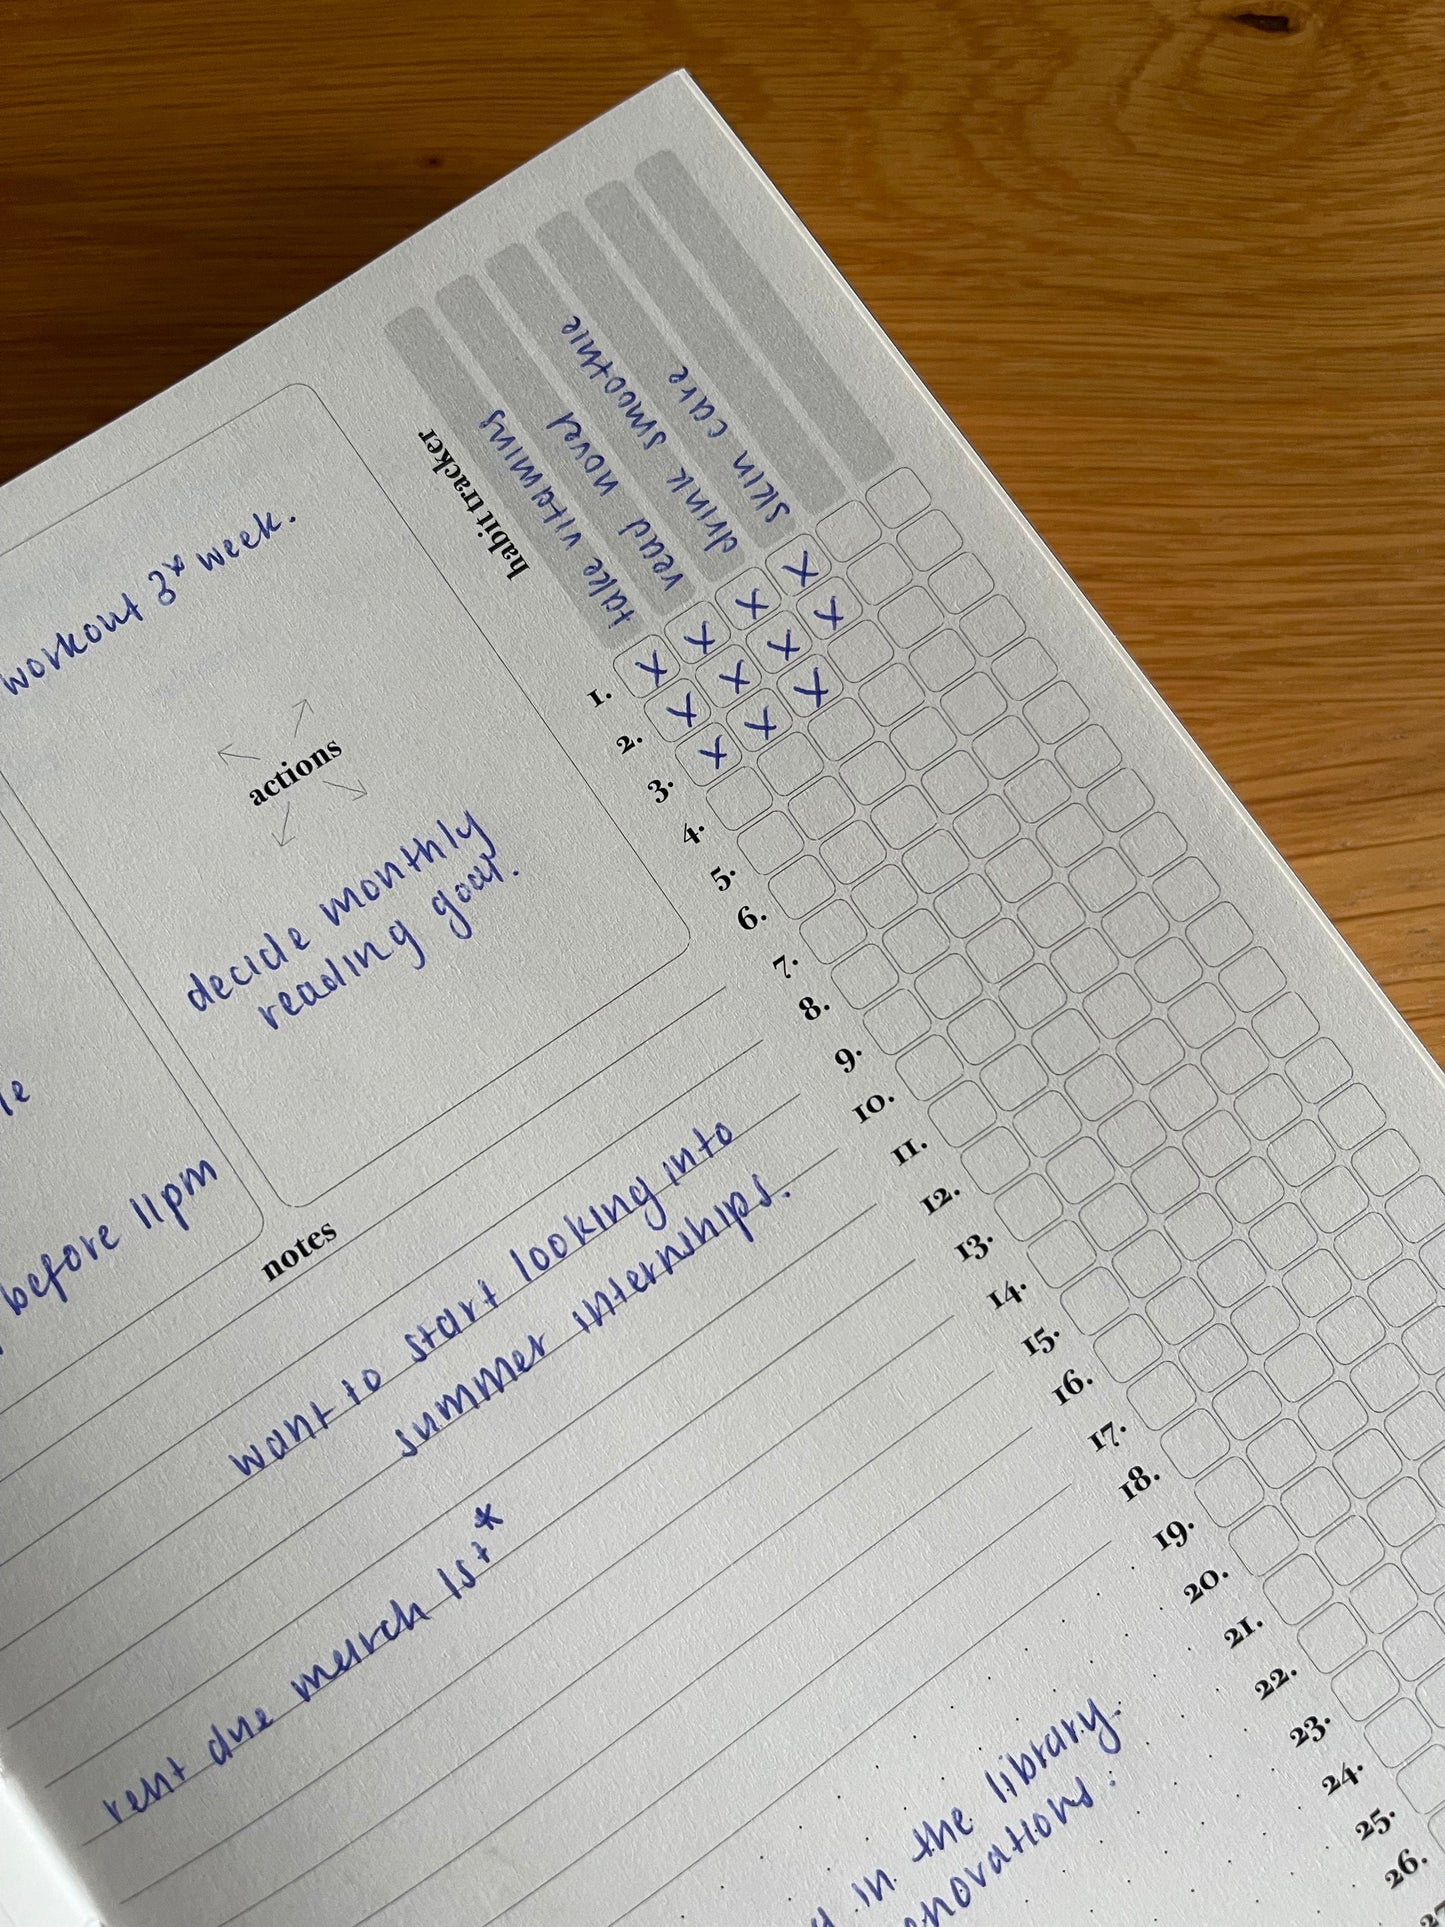 workout 3x week.
actions
decide monthly
reading goal.
before 11pm
notes
want to start looking into
summer internships.
rent due march 1st*
in the library.
habit tracker
take vitamins
read novel
drink smoothie
skin care
1. x x x x
2. x x x x
3. x x x
4.
5.
6.
7.
8.
9.
10.
11.
12.
13.
14.
15.
16.
17.
18.
19.
20.
21.
22.
23.
24.
25.
26.